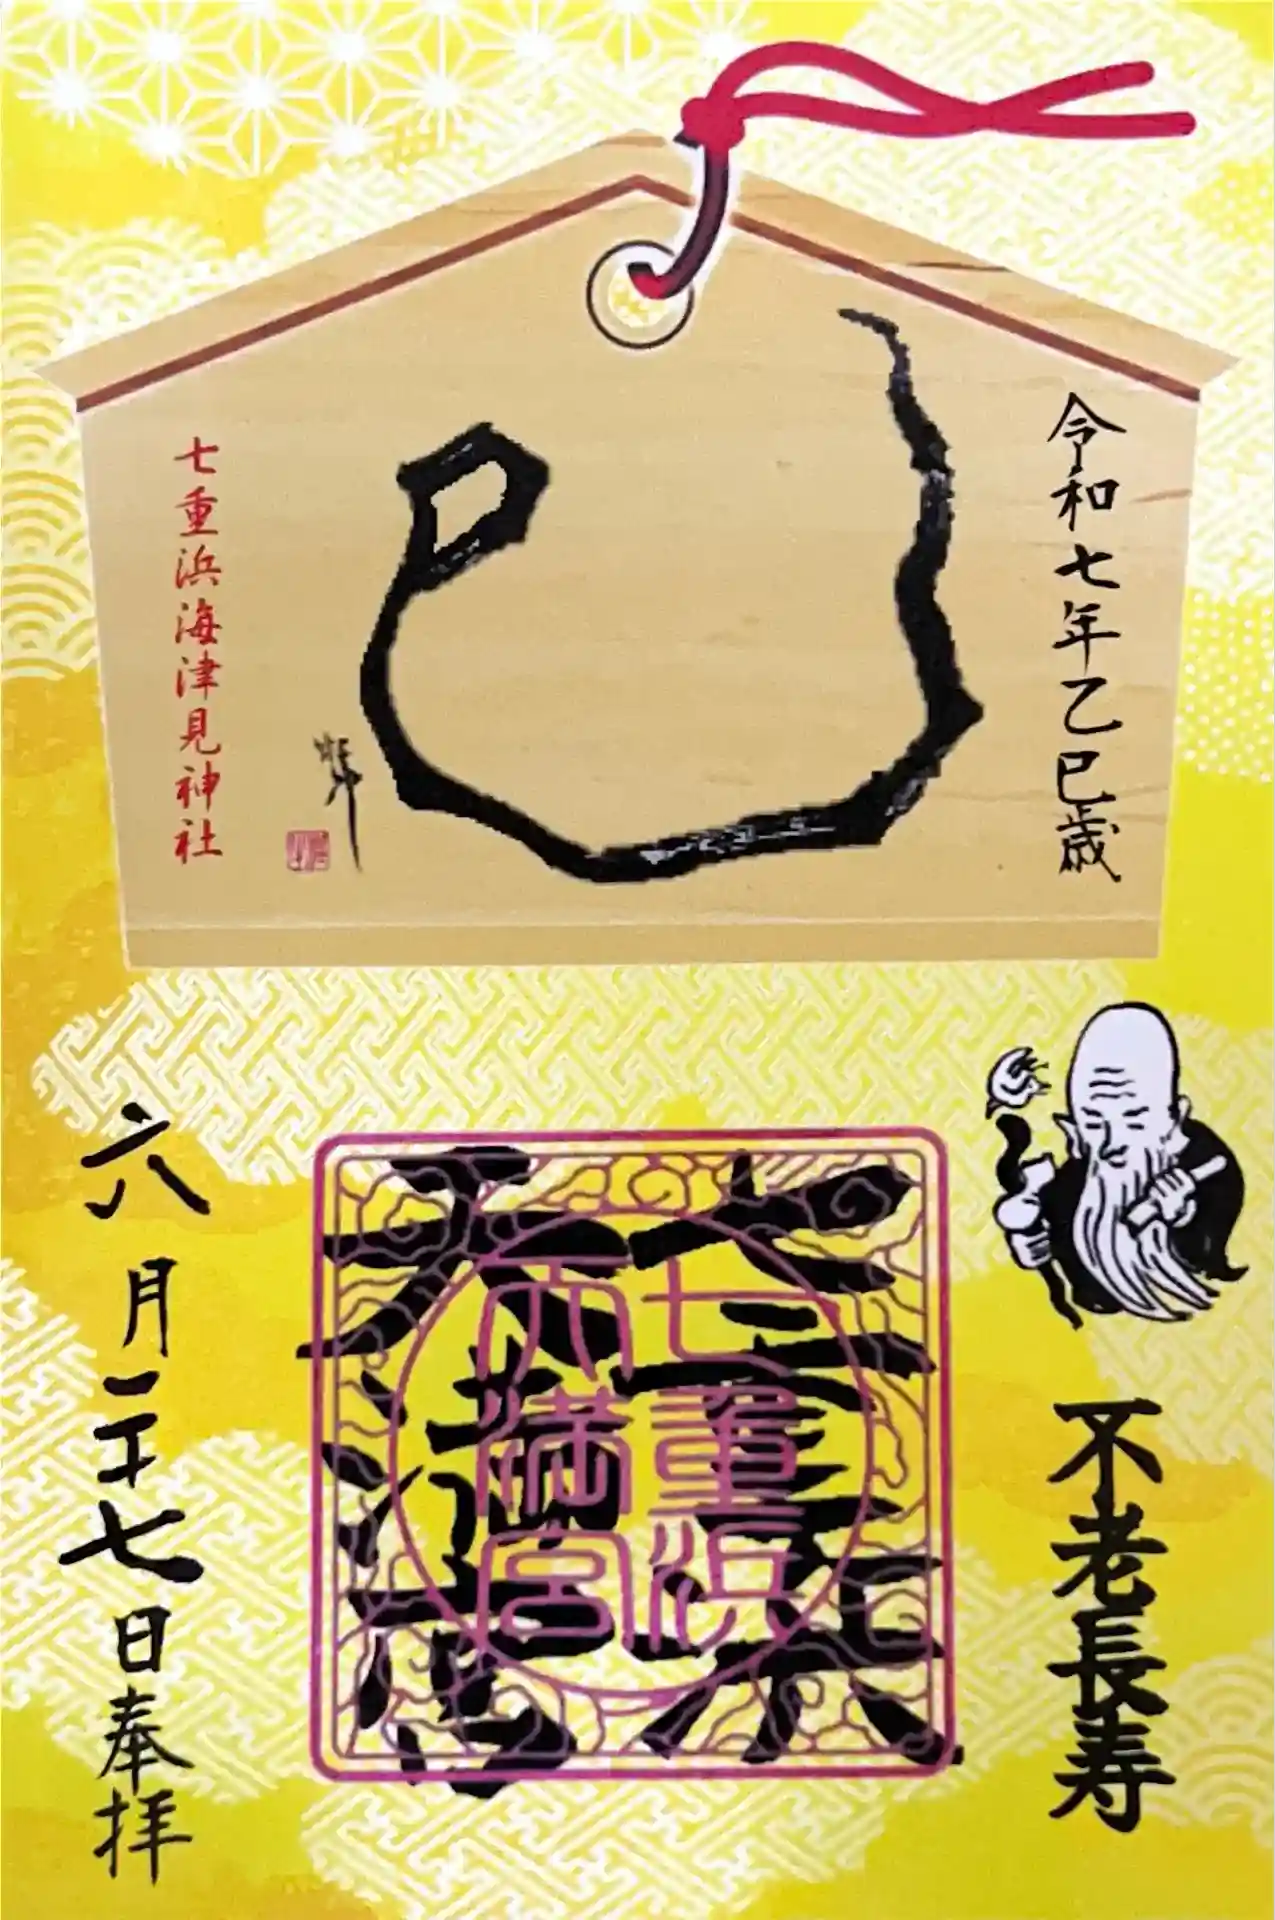 令和七年乙巳歳
巳
七重浜海津見神社
不老長寿
七重浜
天満宮
七重浜
天満宮
六月二十七日奉拝